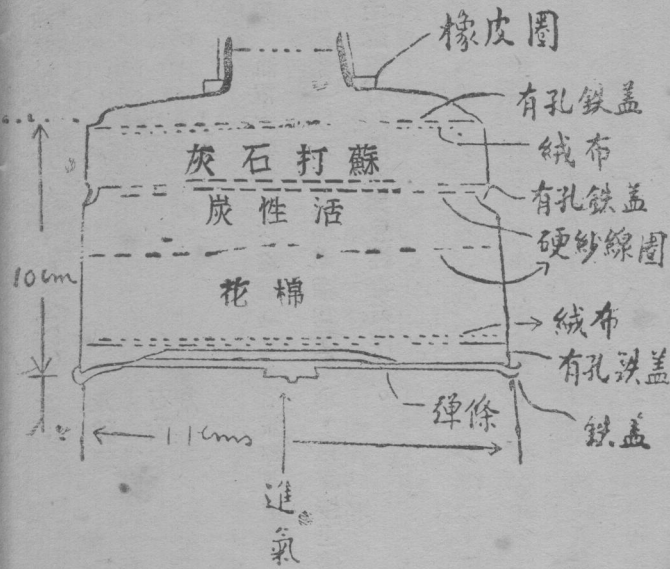 橡皮圈
有孔鉄盖
絨布
灰石打蘇
有孔鉄盖
炭性活
硬紗線圈
10cm
花棉
絨布
有孔鉄盖
弹條
11cms
鉄盖
進
氣